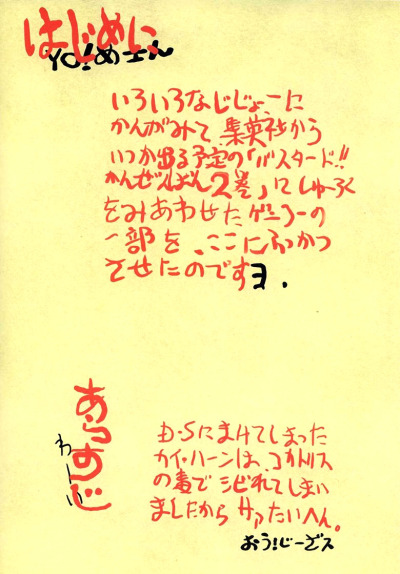 はじめに
YO!めエん
いろいろなじじょーに
かんがみて、集英社から
いつか出る予定の「バスタード!!
かんぜんばん2巻」にしゅーろく
をみあわせたゲンコーの
一部を、ここにふっかつ
させたのですヨ.
あらすじ
わーい
D・Sにまけてしまった
カイ・ハーンは、コカトリス
の毒でシビれてしまい
ましたからサアたいへん。
おう!じーざス